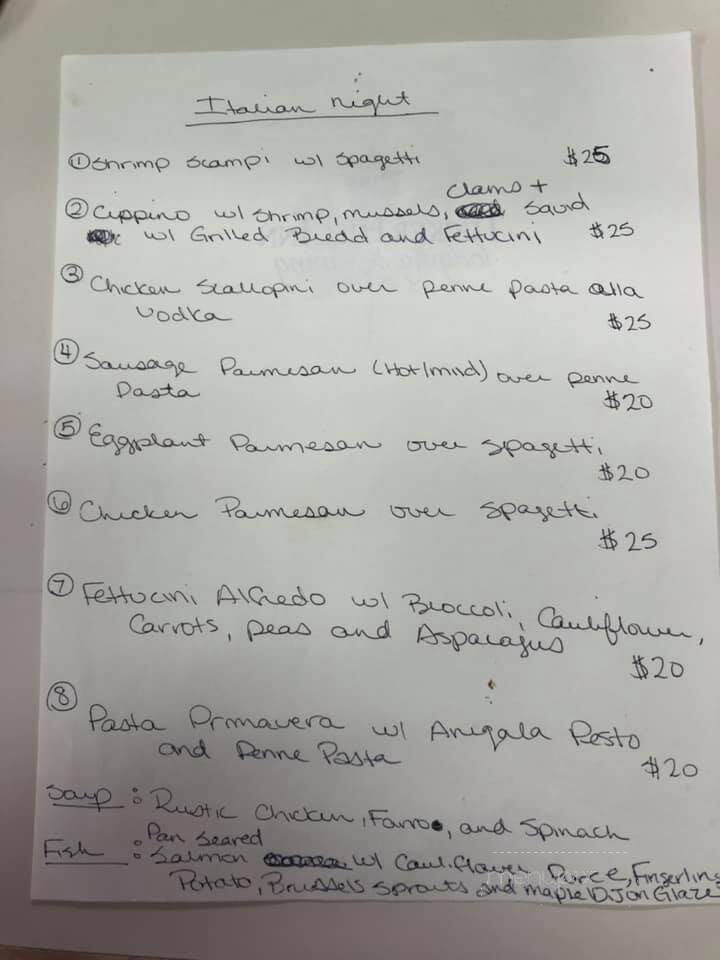 Italian night
① Shrimp Scampi w/ Spagetti $25
clams +
② Cippino w/ Shrimp, mussels, Squid
w/ Grilled Bredd and Fettucini $25
③ Chicken Scallopini over penne pasta alla
vodka $25
④ Sausage Parmesan (Hot/mild) over penne
Pasta $20
⑤ Eggplant Parmesan over spagetti
$20
⑥ Chicken Parmesan over Spagetti
$25
⑦ Fettucini Alfredo w/ Broccoli, Cauliflower,
Carrots, peas and Asparagus
$20
⑧ Pasta Prmavera w/ Arugala Pesto
and Penne Pasta $20
Soup : Rustic Chicken, Farro, and Spinach
Fish : Pan Seared
Salmon w/ Cauliflower Puree, Fingerling
Potato, Brussels sprouts and maple DJon Glaze